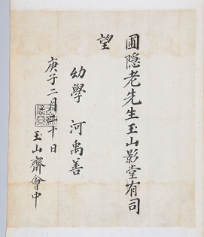 圃隱老先生玉山影堂有司
望
幼學 河禹善
庚子二月三十日
玉山齋會中